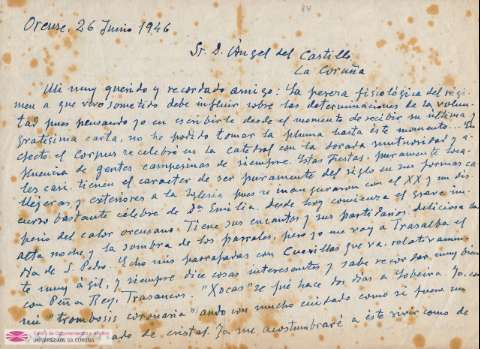 Orense, 26 Junio 1946
Sr. D. Ángel del Castillo
La Coruña
Mi muy querido y recordado amigo: La pereza fisiológica del régi-
men a que vivo sometido debe influir sobre las determinaciones de la volun-
tad pues pensando yo en escribirle desde el momento de recibir su última y
gratísima carta, no he podido tomar la pluma hasta éste momento... En
efecto el Corpus se celebró en la catedral con la dorada suntuosidad y
de gentes campesinas de siempre. Estas fiestas, puramente loca-
les casi, tienen el caracter de ser puramente del siglo en sus formas ca-
llejeras y exteriores a la Iglesia pues se inauguraron con el XX y un dis-
curso bastante célebre de Dª Emilia. Desde hoy comienza el grave im-
perio del calor orensano. Tiene sus encantos y sus partidarios, deliciosa la
alta noche y la sombra de los parrales, pero yo me voy a Trasalba el
día de S. Pedro. Echo mis parrafadas con Cuevillas que va relativamen-
te muy ágil, y siempre dice cosas interesantes y sabe recordar, muy bien
con Peña Rey, Trasancos. "Xocas" se fué hace dos días a Lobeira. Yo, con
mi "trombosis coronaria" ando con mucho cuidado como si fuera un
de cristal. Ya me acostumbraré a éste vivir como de
UNIVERSIDADE DA CORUÑA